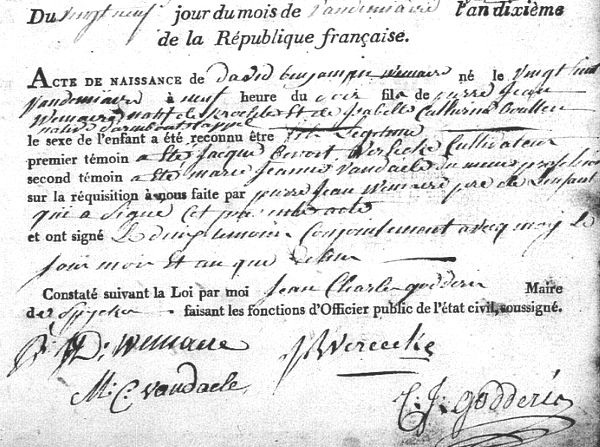 Du vingt neuf jour du mois de vandemiaire l'an dixième
de la République française.
ACTE DE NAISSANCE de david benjamin Wemaire né le vingt huit
vandemiaire à neuf heure du soir fils de pierre Jean
Wemaire natif de Et de Isabelle Catherine
native d'armbouts cappel
le sexe de l'enfant a été reconnu être
premier témoin a été Jacque benoit Cultivateur
second témoin a été marie Jeanne Vandaele du meme
sur la réquisition à nous faite par pierre Jean Wemaire pere de l'enfant
qui a signé Cet acte
et ont signé Conjointement avecq moy le
jour mois Et an que
Constaté suivant la Loi par moi Jean Charle godderis Maire
de Spycker faisant les fonctions d'Officier public de l'état civil, soussigné.
P: J: D: Wemaere J Vereecke
M: C: vandaele
C: J: godderis